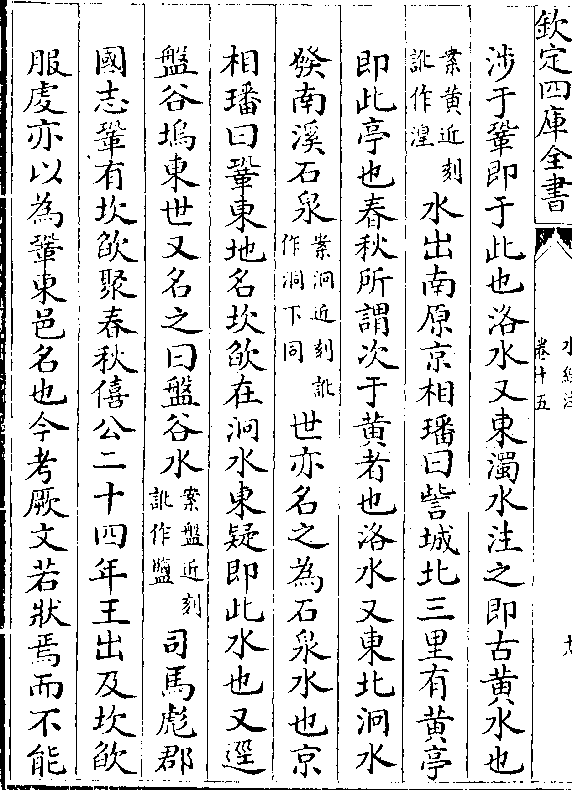 欽定四庫全書
水經注
卷十五
九
涉于鞏即于此也洛水又東濁水注之即古黄水也
案黄近刻訛作湟水出南原京相璠曰訾城北三里有黄亭
即此亭也春秋所謂次于黄者也洛水又東北泂水
發南溪石泉案泂近刻訛作洞下同世亦名之為石泉水也京
相璠曰鞏東地名坎欿在泂水東疑即此水也又逕
盤谷塢東世又名之曰盤谷水案盤近刻訛作盬司馬彪郡
國志鞏有坎欿聚春秋僖公二十四年王出及坎欿
服䖍亦以為鞏東邑名也今考厥文若狀焉而不能